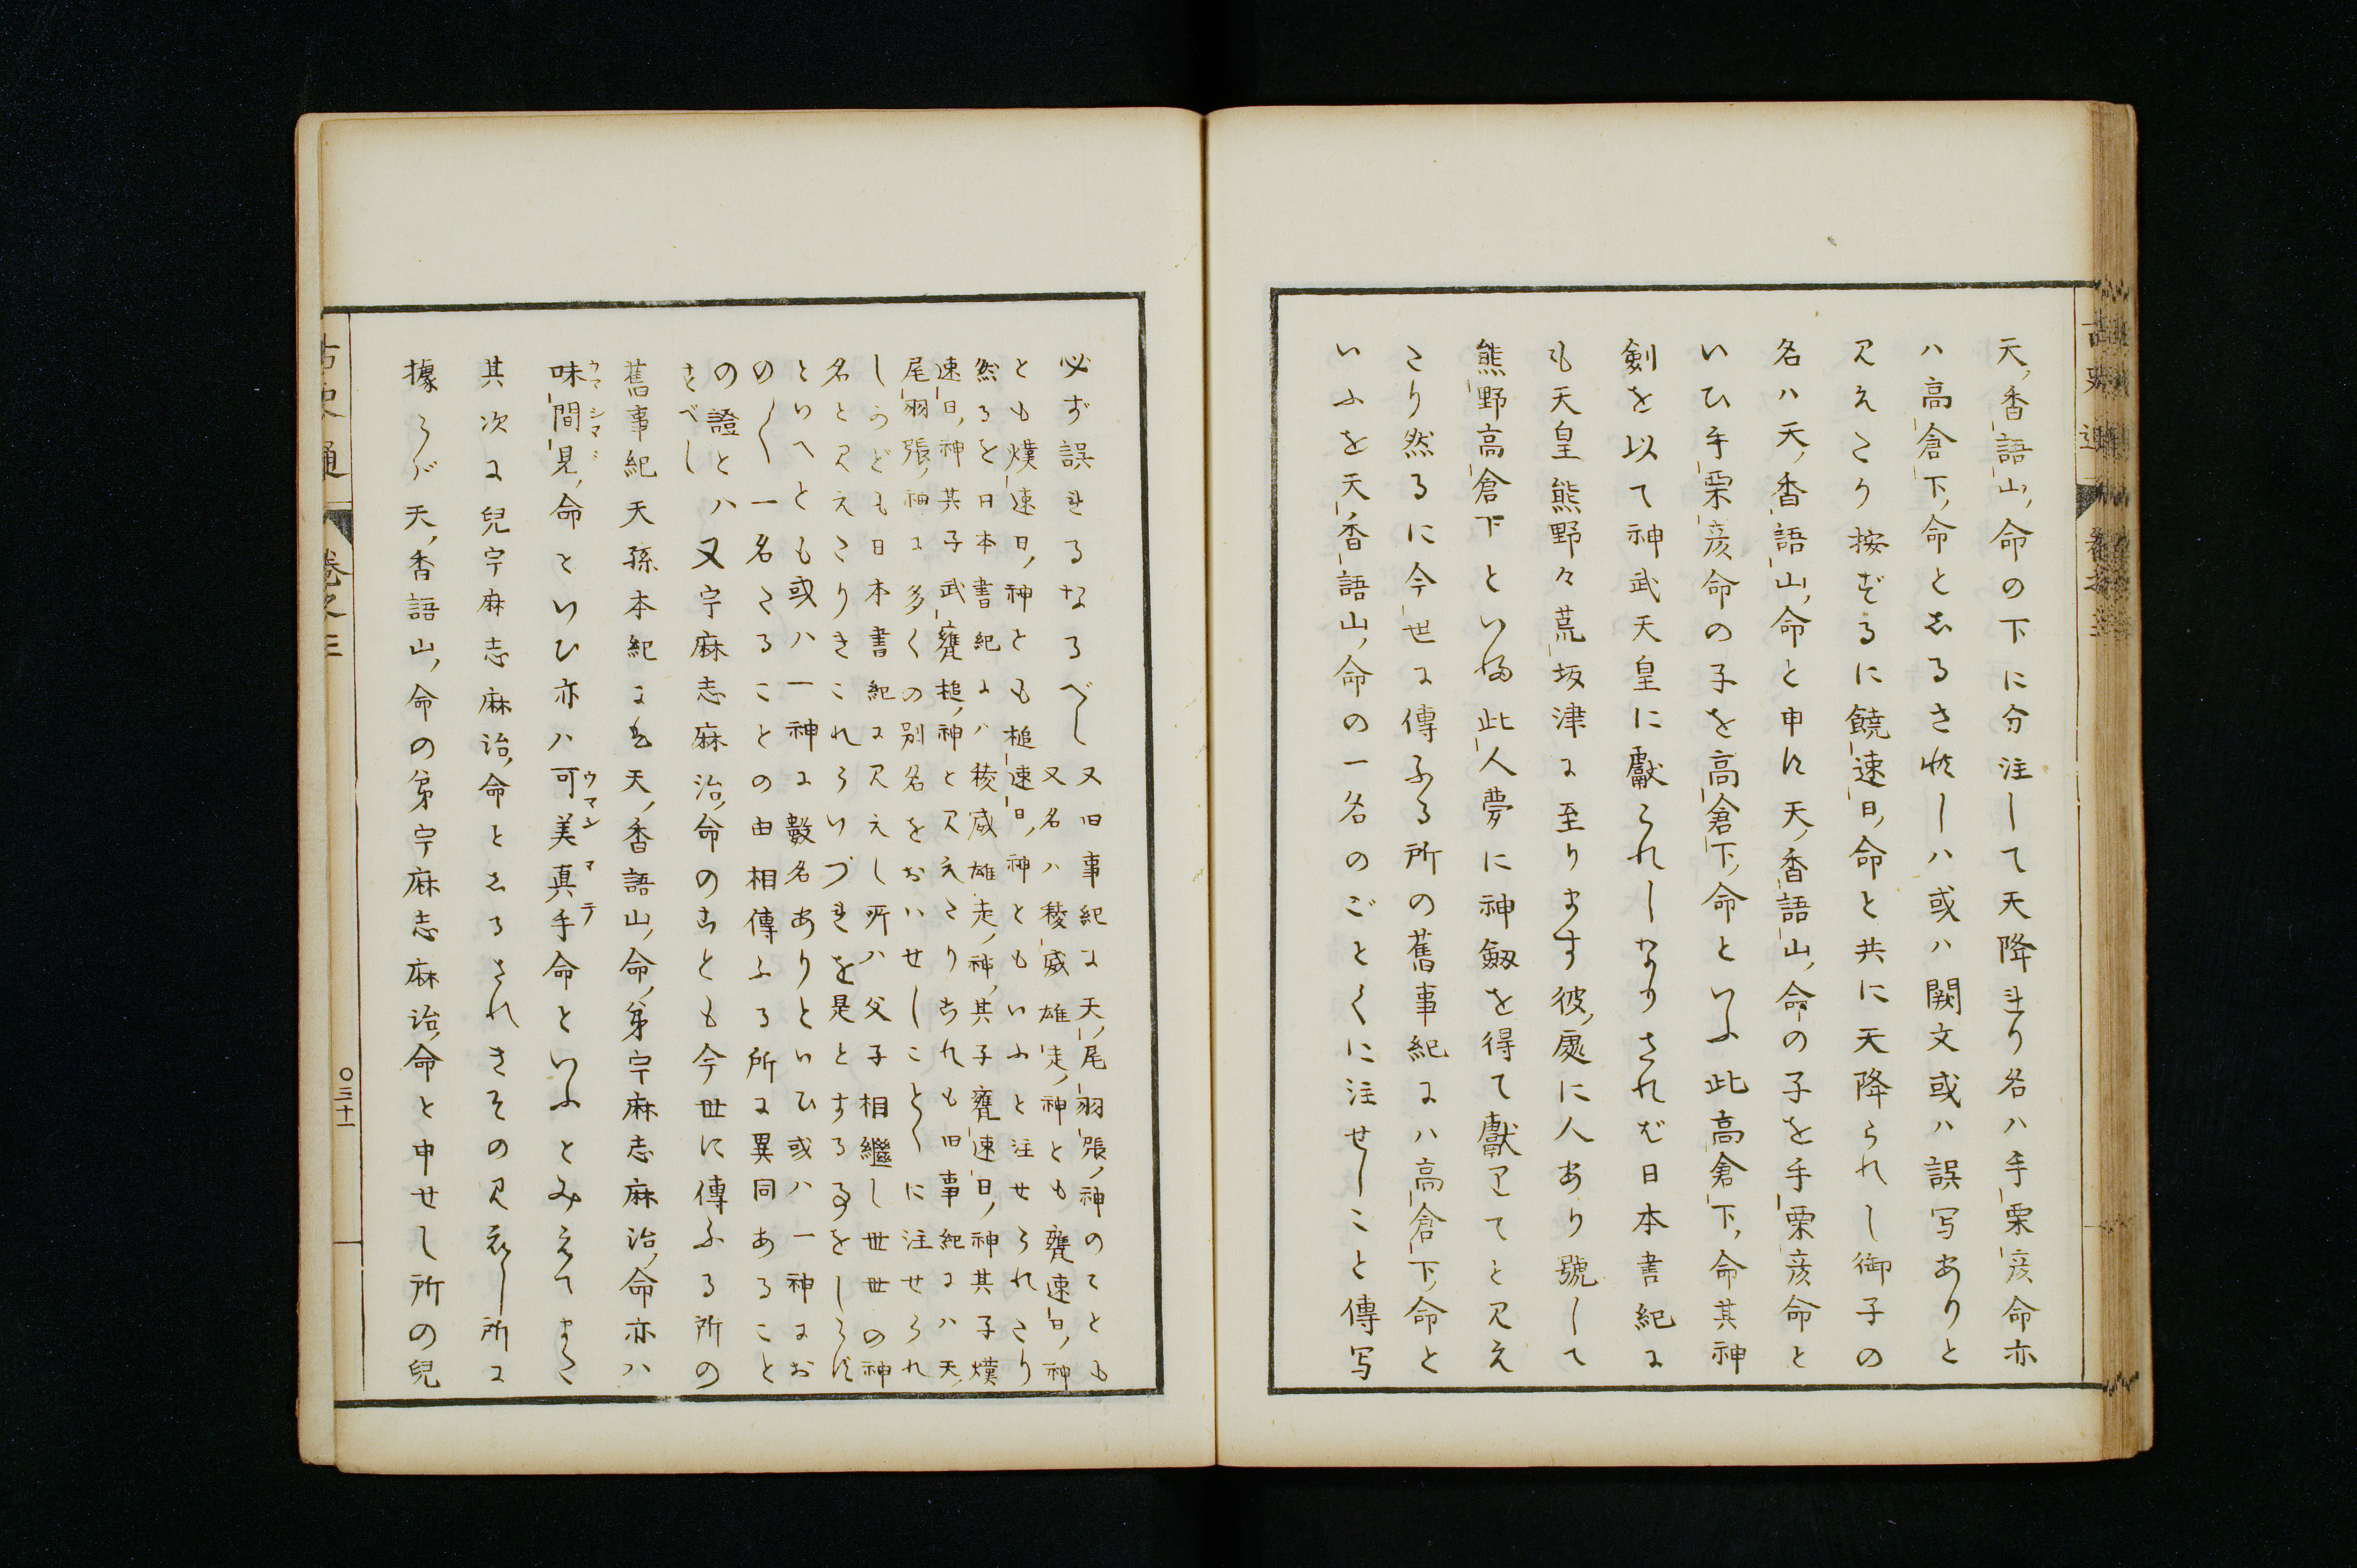 天香語山命の下に分注して天降まり名ハ手栗彦命亦
ハ高倉下命としるされしハ或ハ闕文或ハ誤写ありと
見えたり按ずるに饒速日命と共に天降られし御子の
名ハ天香語山命と申に天香語山命の子を手栗彦命と
いひ手栗彦命の子を高倉下命といふ此高倉下命其神
剣を以て神武天皇に献られしなりされば日本書紀に
も天皇熊野々荒坂津に至ります彼処に人あり号して
熊野高倉下といふ此人夢に神劔を得て献してと見え
たり然るに今世に傳ふる所の舊事紀にハ高倉下命と
いふを天香語山命の一名のごとくに注せしこと傳写
必ず誤まるなるべし又旧事紀に天尾羽張神のことも
又名ハ稜威雄走神とも甕速日神
とも熯速日神とも槌速日神ともいふと注せられたり
然るを日本書紀にハ稜威雄走神其子甕速日神其子熯
速日神其子武甕槌神と見えたりされも旧事紀にハ天
尾羽張神に多くの別名をおハせしことくに注せられ
しかども日本書紀に見えし所ハ父子相継し世世の神
名と見えたりきこれらいづれを是とする事をしらず
といへとも或ハ一神に数名ありといひ或ハ一神にお
のく一名たることの由相傳ふる所に異同あること
の證とハ
すべし
又宇麻志麻治命のことも今世に傳ふる所の
舊事紀天孫本紀にも天香語山命弟宇麻志麻治命亦ハ
味間見命といひ亦ハ可美真手命といふとみえてまた
ウマシマミ
ウマシマテ
其次に兒宇麻志麻治命としるされきその見えし所に
據らバ天香語山命の弟宇麻志麻治命と申せし所の兒
古史通
卷之三
〇三十一